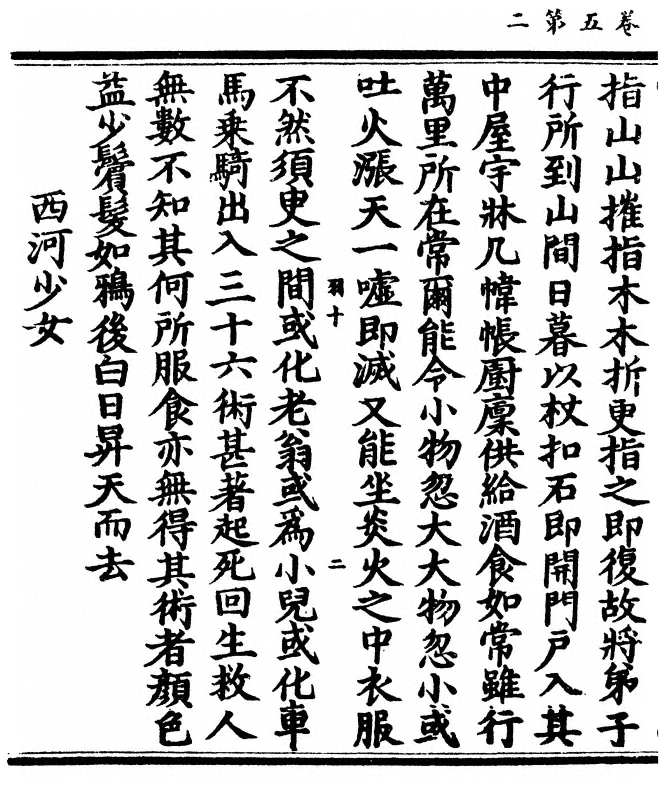 卷五第二
指山山摧指木木折更指之即復故將弟子
行所到山間日暮以杖扣石即開門戶入其
中屋宇牀几幃帳厨廩供給酒食如常雖行
萬里所在常爾能令小物忽大大物忽小或
吐火漲天一噓即滅又能坐炎火之中衣服
羽十 二
不然須叟之間或化老翁或為小兒或化車
馬乗騎出入三十六術甚著起死回生救人
無數不知其何所服食亦無得其術者顏色
益少鬢髮如鴉後白日昇天而去
西河少女